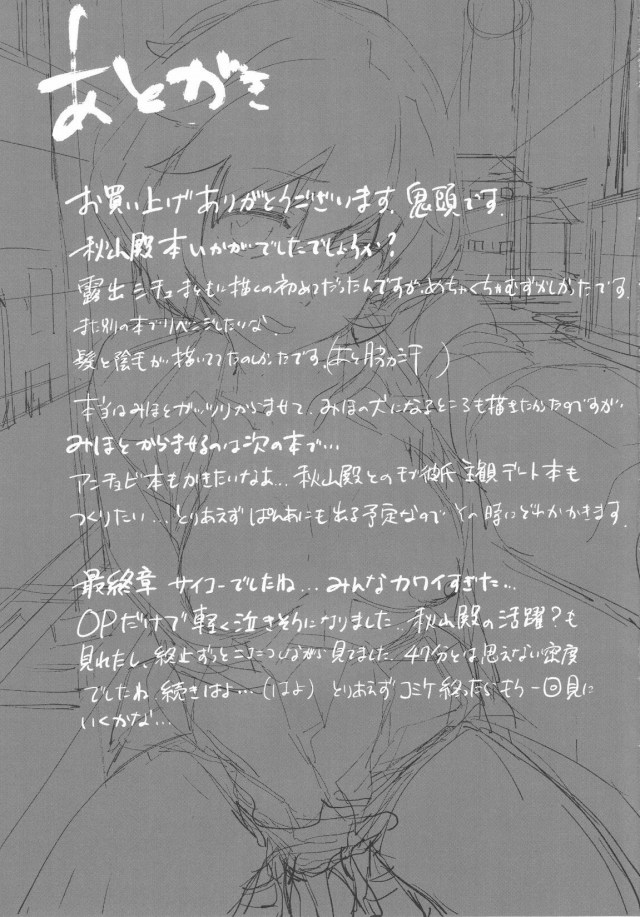 あとがき
お買い上げありがとうございます。鬼頭です。
秋山殿本いかがでしたでしょうか?
露出シチュまともに描くの初めてだったんですが、めちゃくちゃむずかしかったです。
また別の本でリベンジしたいな。
髪と陰毛が描いててたのしかたです。(あと脇汗)
本当はみほとガッツリからませて、みほの犬になるところも描きたかったのですが、
みほとからませるのは次の本で…
アンチョビ本もかきたいなぁ…秋山殿とのモブ彼氏主観デート本も
つくりたい…とりあえずぱんあにも出る予定なのでその時にどれかかきます。
最終章 サイコーでしたね…みんなカワイすぎた…
OPだけで軽く泣きそうになりました。秋山殿の活躍?も
見れたし、終止ずっとニヤニヤしながら見てました。47分とは思えない密度
でしたね 続きはよ…(はよ) とりあえずコミケ終ったらもう一回見に
いくかな…